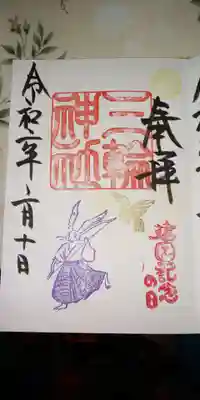 奉拝
三輪神社
建国記念
の日
令和 年二月十日